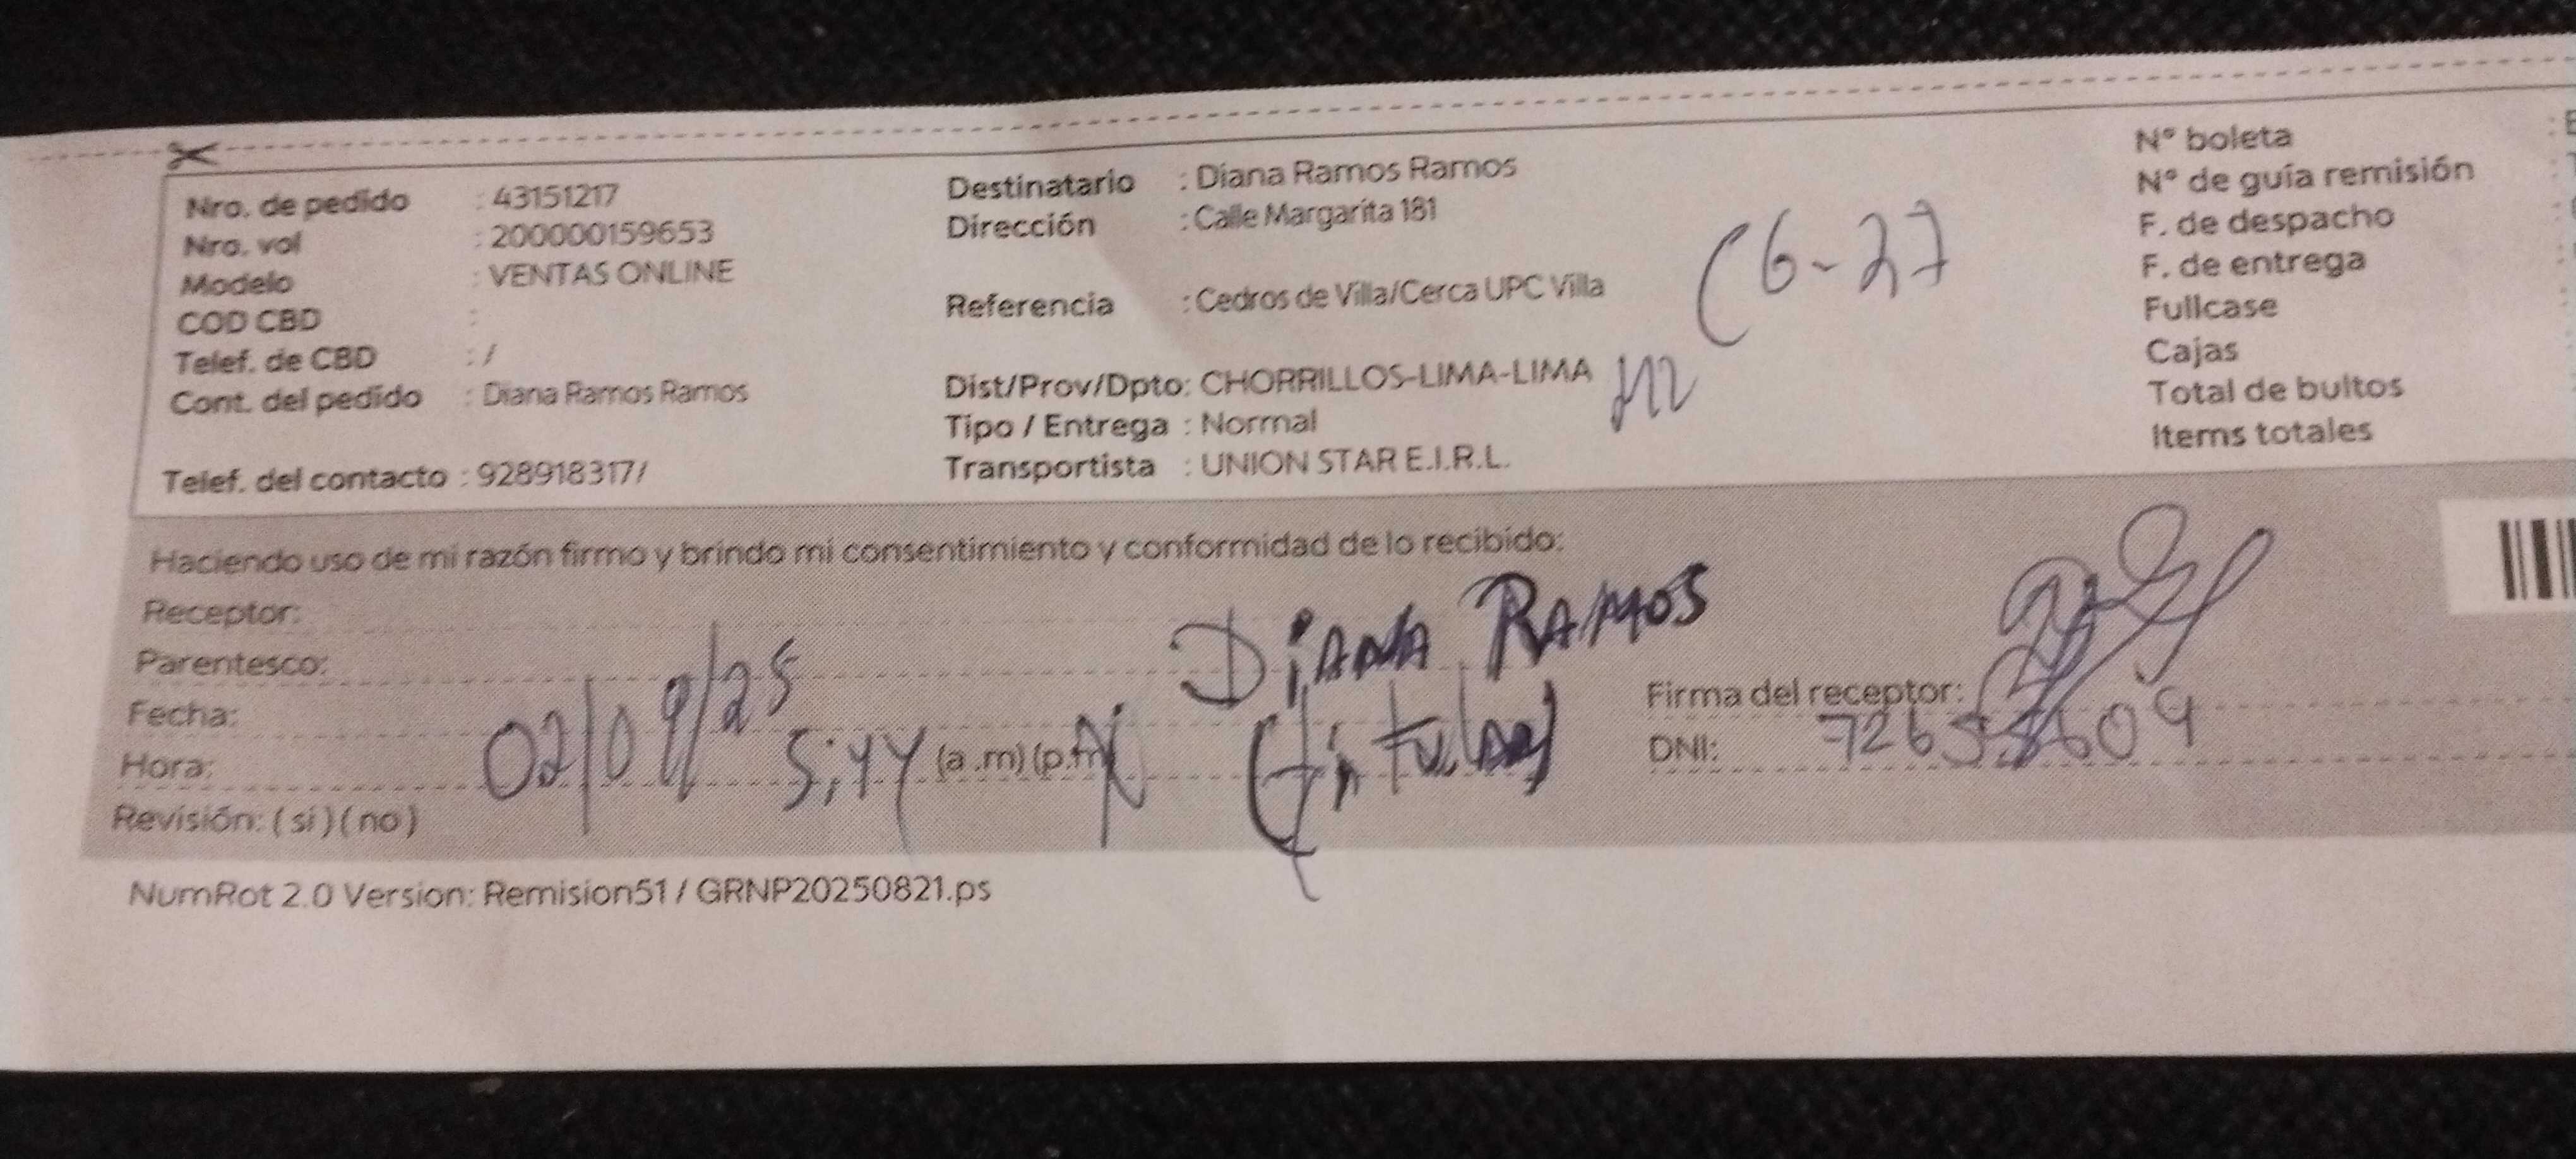 Nro. de pedido : 43151217
Nro. vol : 200000159653
Modelo : VENTAS ONLINE
COD CBD :
Telef. de CBD : /
Cont. del pedido : Diana Ramos Ramos
Telef. del contacto : 928918317/
Destinatario : Diana Ramos Ramos
Dirección : Calle Margarita 181
Referencia : Cedros de Villa/Cerca UPC Villa
Dist/Prov/Dpto: CHORRILLOS-LIMA-LIMA
Tipo / Entrega : Normal
Transportista : UNION STAR E.I.R.L.
N° boleta
N° de guía remisión
F. de despacho
F. de entrega
Fullcase
Cajas
Total de bultos
Items totales
Haciendo uso de mi razón firmo y brindo mi consentimiento y conformidad de lo recibido:
Receptor:
Parentesco:
Fecha: 02/09/25
Hora: (a.m) (p.m)
Revisión: (si) (no)
DIANA RAMOS
Firma del receptor:
DNI:
NumRot 2.0 Version: Remision51 / GRNP20250821.ps